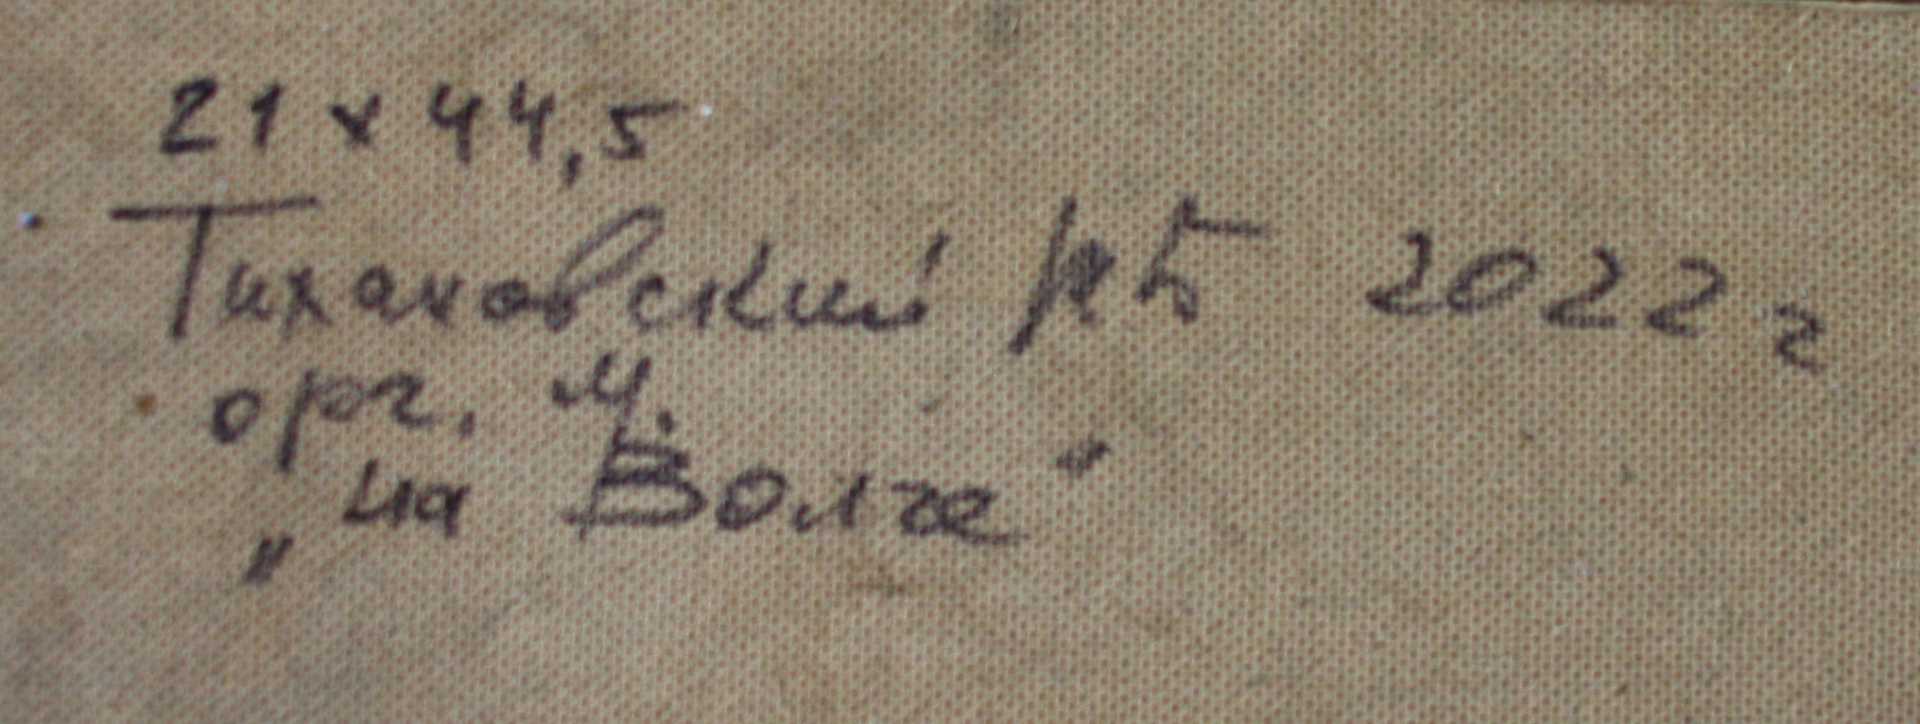 21 х 44,5
Тихановский 2022 г
орг. м.
„на Волге"